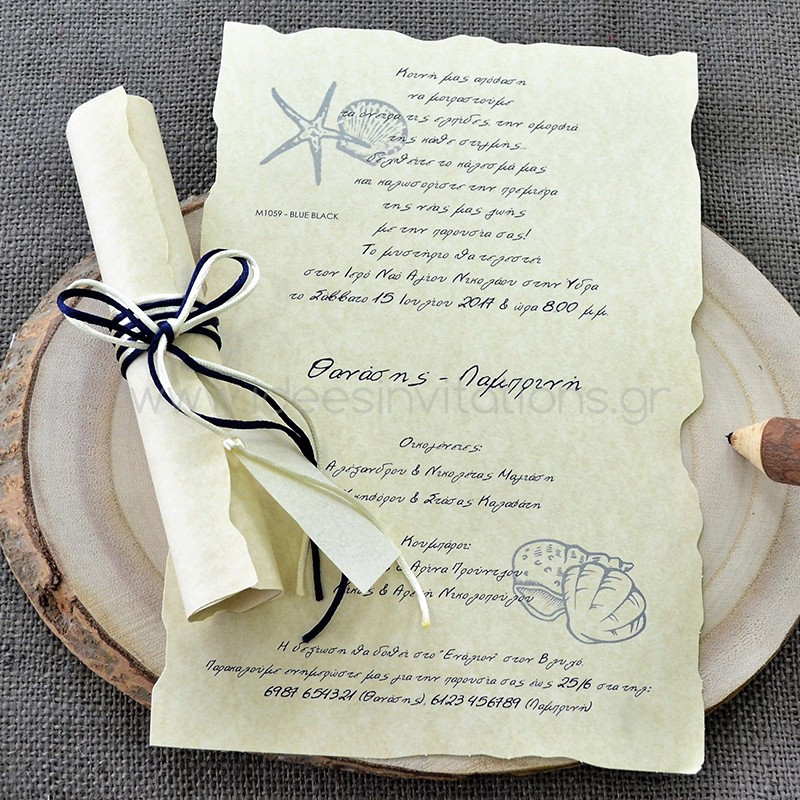 Κοινή μας απόφαση
να μοιραστούμε
τα όνειρα τις ελπίδες, την ομορφιά
της κάθε στιγμής...
Δεχθείτε το κάλεσμά μας
και καλωσορίστε την πρεμιέρα
της νέας μας ζωής
με την παρουσία σας!
M1059 - BLUE BLACK
Το μυστήριο θα τελεστεί
στον Ιερό Ναό Αγίου Νικολάου στην Ύδρα
το Σάββατο 15 Ιουλίου 2017 & ώρα 8:00 μ.μ.
Θανάσης - Λαμπρινή
www.ideesinvitations.gr
Οικογένειες:
Αλεξάνδρου & Νικολέτας Μαγιάση
& Στάσας Καλαφάτη
Κουμπάροι:
& Αρίνα Προύντζου
& Αρετή Νικολοπούλου
Η δεξίωση θα δοθεί στο "Ενάλιον" στον Βλυχό.
Παρακαλούμε ενημερώστε μας για την παρουσία σας έως 25/6 στα τηλ:
6987 654321 (Θανάσης), 6123 456789 (Λαμπρινή)